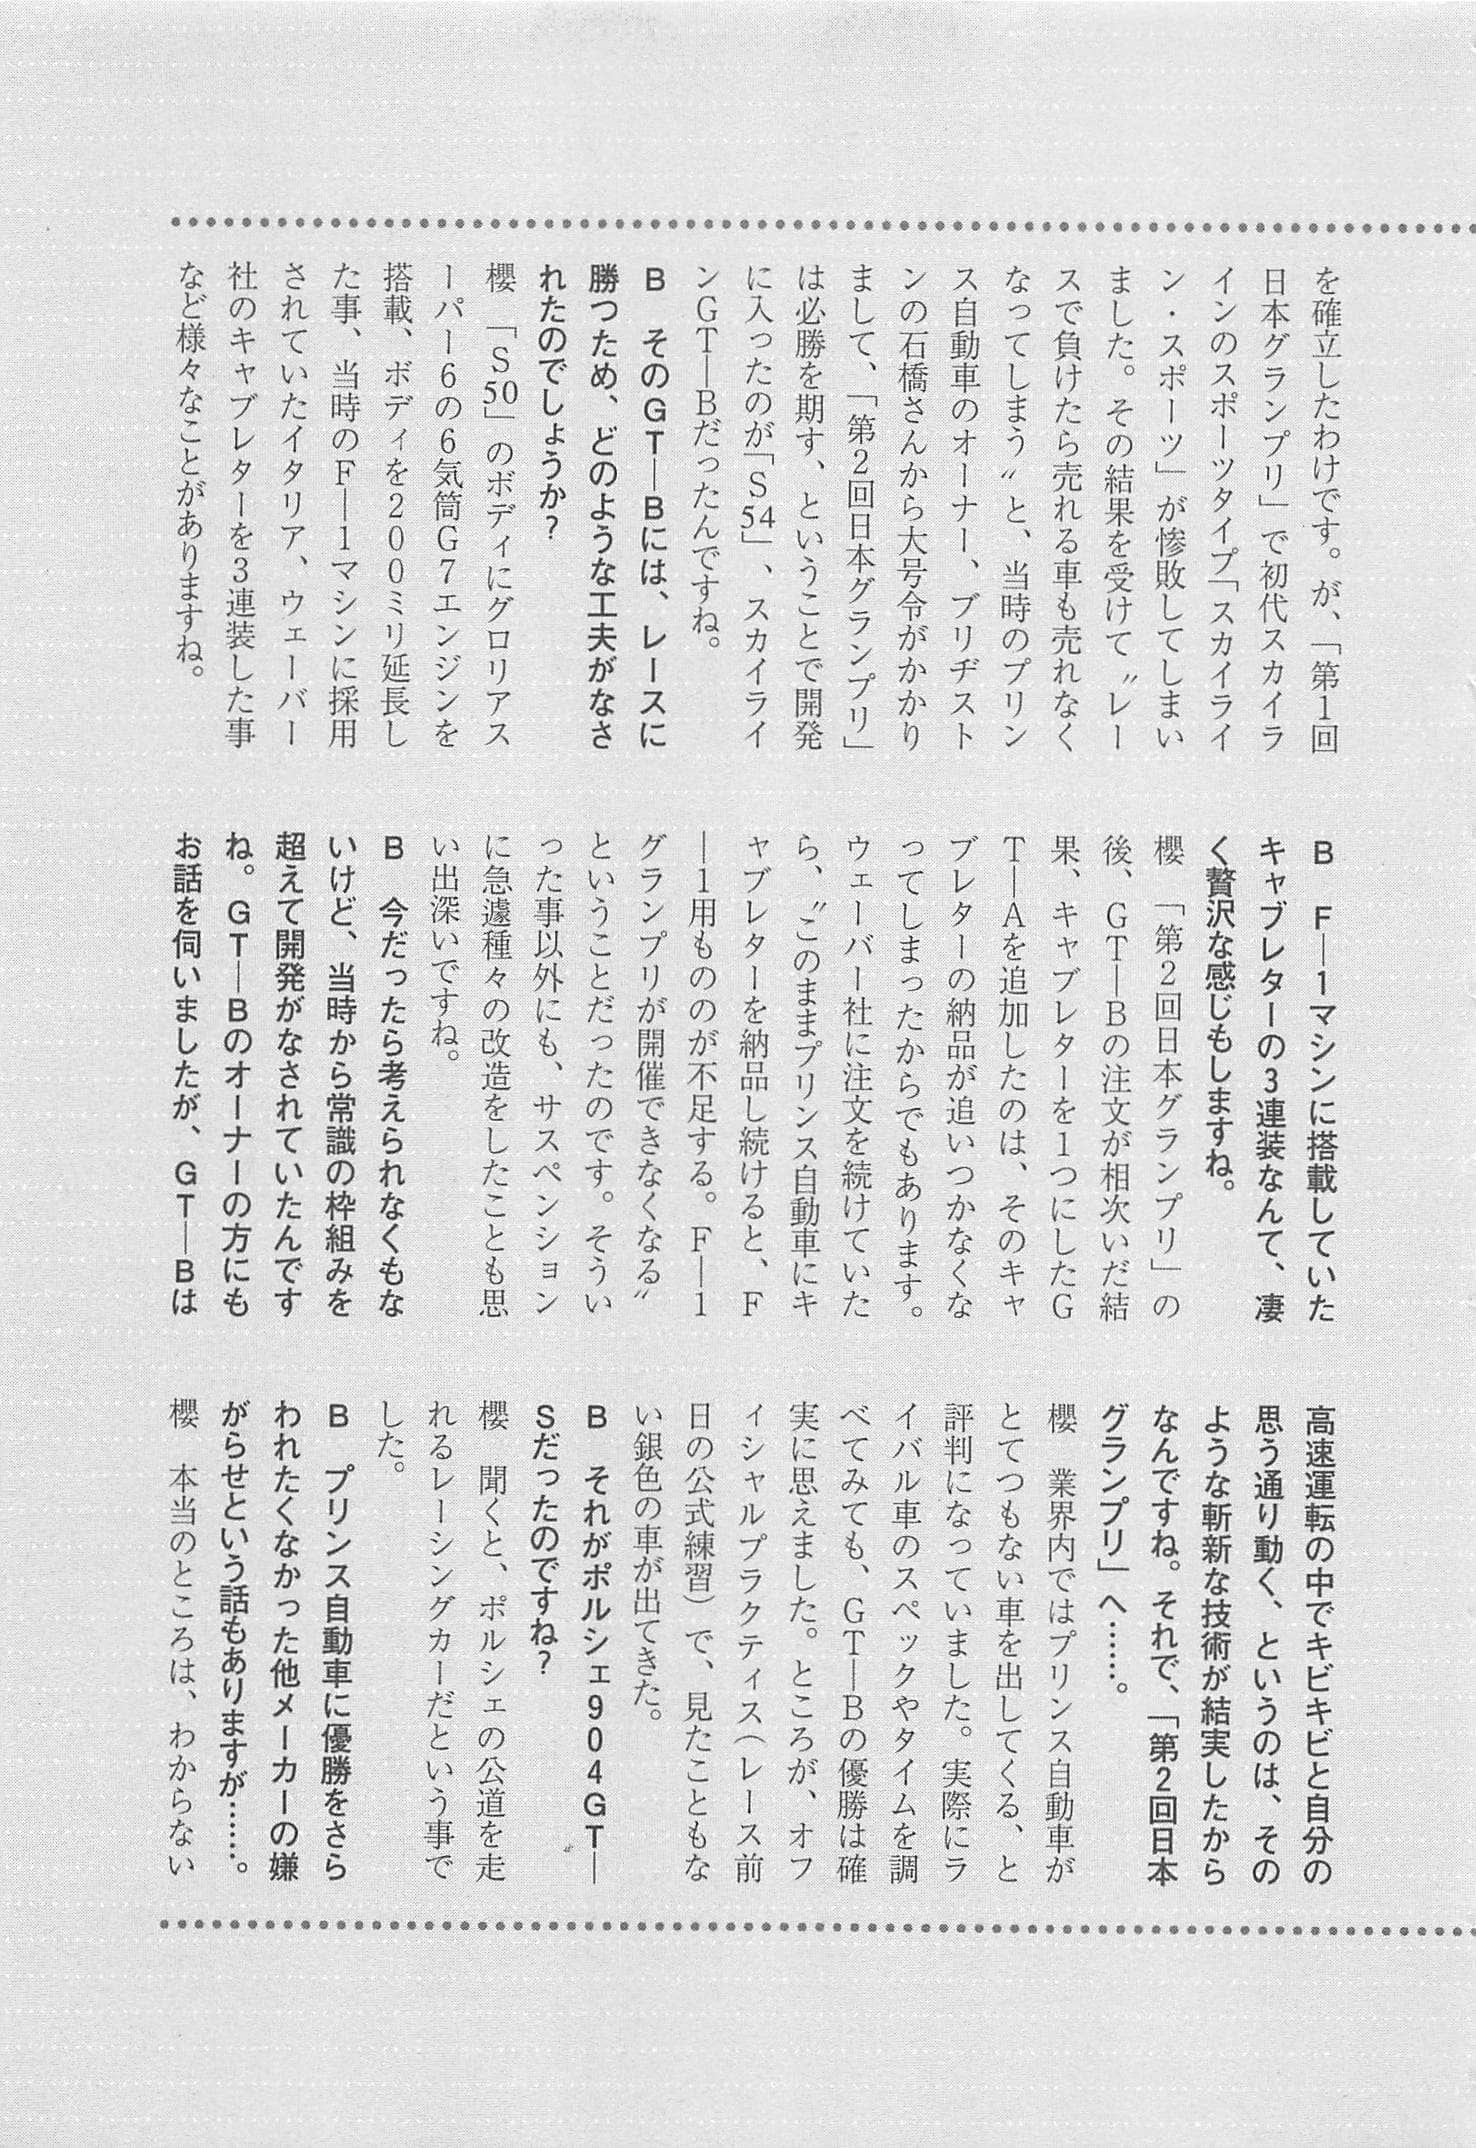 を確立したわけです。が、「第1回
日本グランプリ」で初代スカイラ
インのスポーツタイプ「スカイライ
ン・スポーツ」が惨敗してしまい
ました。その結果を受けて〝レー
スで負けたら売れる車も売れなく
なってしまう〟と、当時のプリン
ス自動車のオーナー、ブリヂスト
ンの石橋さんから大号令がかかり
まして、「第2回日本グランプリ」
は必勝を期す、ということで開発
に入ったのが「S54」、スカイライ
ンGT―Bだったんですね。
B　そのGT―Bには、レースに
勝つため、どのような工夫がなさ
れたのでしょうか?
櫻　「S50」のボディにグロリアス
ーパー6の6気筒G7エンジンを
搭載、ボディを200ミリ延長し
た事、当時のF―1マシンに採用
されていたイタリア、ウェーバー
社のキャブレターを3連装した事
など様々なことがありますね。
B　F―1マシンに搭載していた
キャブレターの3連装なんて、凄
く贅沢な感じもしますね。
櫻　「第2回日本グランプリ」の
後、GT―Bの注文が相次いだ結
果、キャブレターを1つにしたG
T―Aを追加したのは、そのキャ
ブレターの納品が追いつかなくな
ってしまったからでもあります。
ウェーバー社に注文を続けていた
ら、〝このままプリンス自動車にキ
ャブレターを納品し続けると、F
―1用もののが不足する。F―1
グランプリが開催できなくなる〟
ということだったのです。そうい
った事以外にも、サスペンション
に急遽種々の改造をしたことも思
い出深いですね。
B　今だったら考えられなくもな
いけど、当時から常識の枠組みを
超えて開発がなされていたんです
ね。GT―Bのオーナーの方にも
お話を伺いましたが、GT―Bは
高速運転の中でキビキビと自分の
思う通り動く、というのは、その
ような斬新な技術が結実したから
なんですね。それで、「第2回日本
グランプリ」へ……。
櫻　業界内ではプリンス自動車が
とてつもない車を出してくる、と
評判になっていました。実際にラ
イバル車のスペックやタイムを調
べてみても、GT―Bの優勝は確
実に思えました。ところが、オフ
ィシャルプラクティス(レース前
日の公式練習)で、見たこともな
い銀色の車が出てきた。
B　それがポルシェ904GT―
Sだったのですね?
櫻　聞くと、ポルシェの公道を走
れるレーシングカーだという事で
した。
B　プリンス自動車に優勝をさら
われたくなかった他メーカーの嫌
がらせという話もありますが……。
櫻　本当のところは、わからない